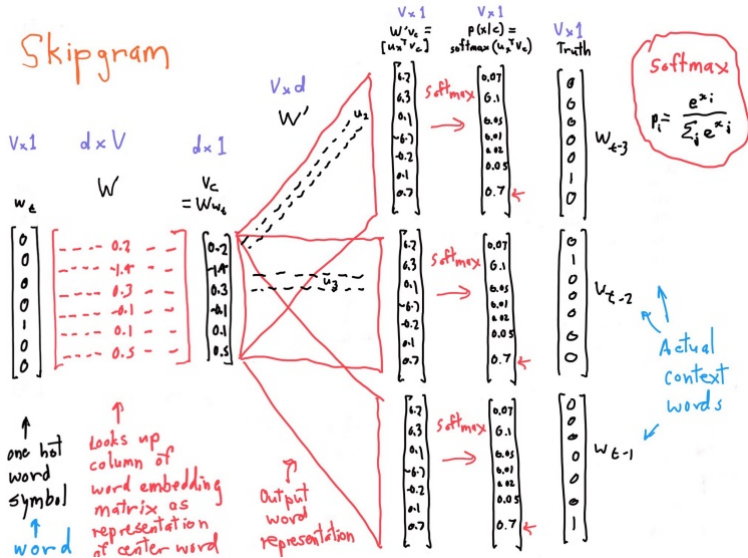 Skipgram
V×1
d×V
d×1
V×d
V×1
V×1
V×1
W
W'
w_t
V_c
= Ww_t
W'V_c =
[u_x^T V_c]
p(x|c) =
softmax(u_x^T V_c)
Truth
softmax
p_i = e^{x_i} / Σ_j e^{x_j}
0
0
0
0
1
0
0
---- 0.2 - -
---- -1.4 - -
---- 0.3 - -
---- -0.1 - -
---- 0.1 - -
---- 0.5 - -
0.2
-1.4
0.3
-0.1
0.1
0.5
u_2
softmax
0.3
0.1
-0.2
0.1
0.7
0.07
0.1
0.05
0.01
0.02
0.05
0.7
0
0
0
0
0
1
0
W_t-3
u_3
softmax
0.3
0.1
-0.2
0.1
0.7
0.07
0.1
0.05
0.01
0.02
0.05
0.7
0
1
0
0
0
0
0
W_t-2
softmax
0.3
0.1
-0.2
0.1
0.7
0.07
0.1
0.05
0.01
0.02
0.05
0.7
0
0
0
0
0
0
1
W_t-1
Actual
context
words
one hot
word
symbol
word
Looks up
column of
word embedding
matrix as
representation
of center word
Output
word
representation